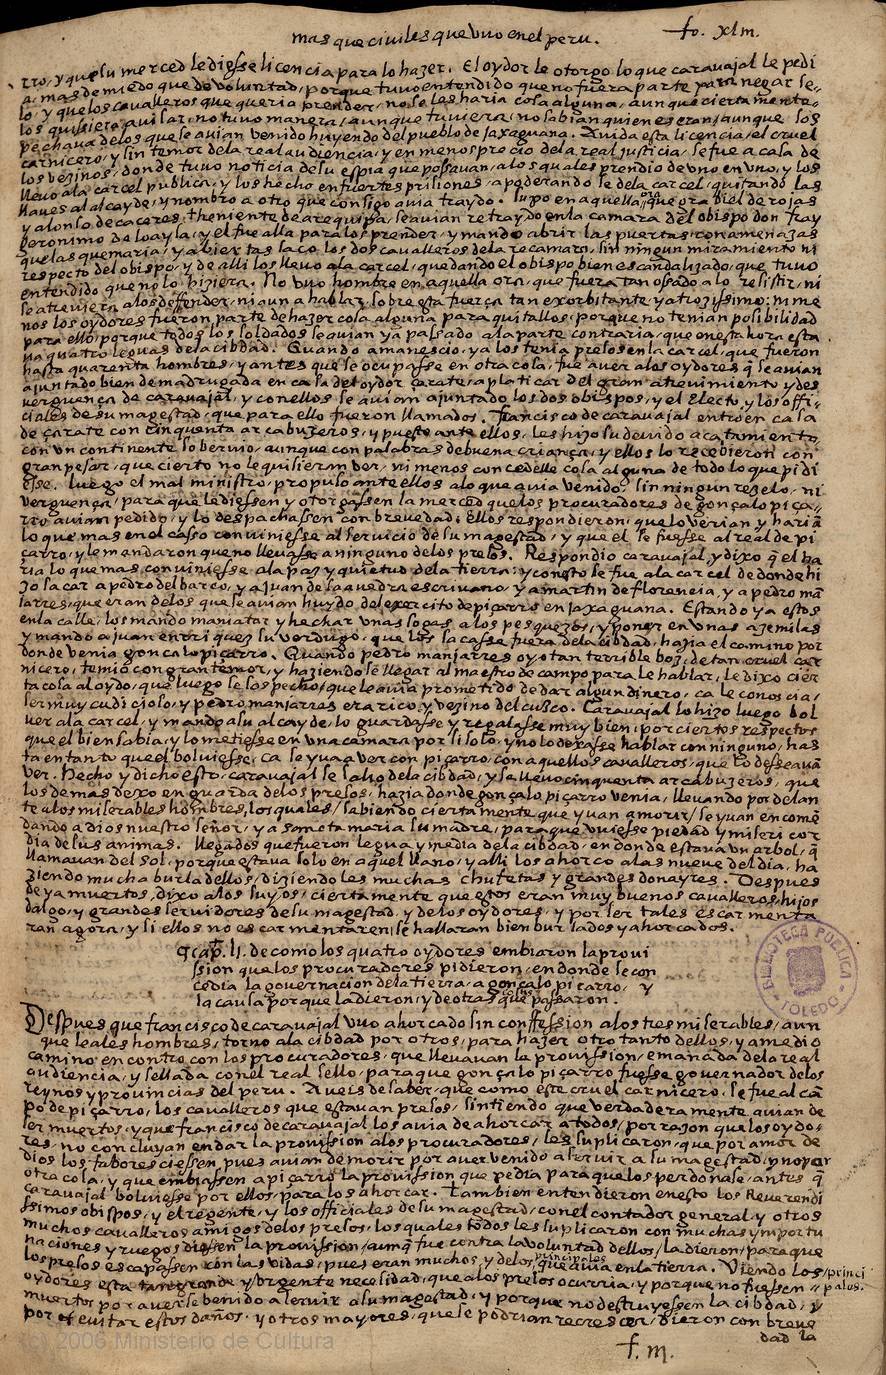 mas que civiles que vuo en el peru. fo. xlm.
rro, y que su merced le diesse licencia para lo hazer. El oydor le otorgo lo que carauajal le pedi
a, mas de miedo que de voluntad, porque tuuo entendido que no fuera parte para negar se-
lo y que los caualleros que queria prender, no se les haria cosa alguna, aunque ciertamente
los quisiera auisar, no tuuo manera, aunque tuuiera, no sabian quienes eran, aunque sos
pechaua de los que se auian venido huyendo del pueblo de Jaxaguana. Auida esta licencia, el cruel
carnicero, y sin temor de la real audiencia, y en menosprecio de la real justicia, se fue a casa de
los vezinos, donde tuuo noticia de su espia que possauan, a los quales prendio de vno en vno, y los
lleuo a la carcel publica, y los hecho en fuertes prisiones, apoderando se de la carcel, quitando las
llaues al alcayde, y nombro a otro que consigo auia traydo. Supo en aquella ora que grabiel de rojas
y alonso de caceres, theniente de arequipa, se auian retraydo en la camara del obispo don fray
geronimo de loayla, y el fue alla para los prender, y mando abrir las puertas, con amenazas
que las quemaria, y abiertas saco los dos caualleros de la recamara, sin ningun miramiento ni
respecto del obispo, y de alli los lleuo a la carcel, quedando el obispo bien escandalizado, que tuuo
entendido que no lo hiziera. No vuo hombre en aquella ora, que fuera tan ossado a lo resistir, ni
se atreuiera a los deffender, ni aun a hablar, sobre esta fuerça tan exorbitante y atrozissimo: ni me
nos los oydores fueron parte de hazer cosa alguna para quitallos, porque no tenian posibilidad
para ello, porque todos los soldados se auian ya passado a la parte contraria, que en esta hora esta
ua quatro leguas de la cibdad. Quando amanescio, ya los tenia presos en la carcel, que fueron
hasta quarenta hombres, y antes que se ocupasse en otra cosa, fue a uer a los oydores q̃ se auian
ajuntado bien de madrugada en casa del oydor çarate, a platicar del gran atreuimiento y des
verguença de carauajal, y con ellos se auian ajuntado los dos obispos, y el Electo, y los offi-
ciales de su magestad, que para ello fueron llamados. Francisco de carauajal entro en casa
de çarate con cinquenta arcabuzeros, y puesto ante ellos, les hizo su deuido acatamiento,
con vn continente soberuio, aunque con palabras de buena criança, y ellos lo recebieron con
gran pesar, que cierto no le quisieran ver, ni menos concedelle cosa alguna de todo lo que pidi
esse. Luego el mal ministro, propuso ante ellos a lo que auia venido, sin ningun rezelo, ni
verguença, para que le diessen y otorgassen la merced que los procuradores de gonçalo piça-
rro auian pedido, y lo despachassen con breuedad: Ellos respondieron, que lo verian y hariã
lo que mas en el casso conuiniesse al seruicio de su magestad, y que el se fuesse al real de pi
çarro, y le mandaron que no lleuasse a ninguno de los presos. Respondio carauajal, y dixo q̃ el ha
ria lo que mas conuiniesse a la paz y quietud de la tierra: y con esto se fue a la carcel de donde hi
zo sacar a pedro del barco, y a juan de saauedra escriuano, y a martin de florencia, y a pedro mã
jarres, que eran de los que se auian huydo del exercito de piçarro en Jaxaguana. Estando ya estos
en la calle, los mando maniatar, y hechar vnas sogas a los pescueços, y poner en vnas azemilas
y mando a juan enrriquez su verdugo, que los sacasse fuera de la cibdad, hazia el camino por
donde venia gonçalo piçarro. Quando pedro manjarres oyo tan terrible boz, de tan cruel car
nicero, temio con gran temor, y haziendo se llegar al maestro de campo para le hablar, le dixo cier
ta cosa al oydo, que luego se sospecho, que le auia prometido de dar algun dinero, ca le conoscia,
ser muy cudicioso, y pedro manjarres era rico, y vezino del cusco. Carauajal lo hizo luego bol
uer a la carcel, y mando a su alcayde, lo guardasse y regalasse muy bien, por ciertos respectos
que el bien sabia, y lo metiesse en vna camara por si solo, y no lo dexasse hablar con ninguno, has
ta en tanto que el boluiesse, ca se yua a ver con piçarro, con aquellos caualleros, que lo desseauã
ver. Hecho y dicho esto, carauajal se salio de la cibdad, y se lleuo cinquenta arcabuzeros, que
los demas dexo en guarda de los presos, hazia donde gonçalo piçarro venia, lleuando por delan
te a los miserables hombres, los quales, sabiendo ciertamente que yuan a morir, se yuan encomẽ
dando a dios nuestro señor, y a sancta maria su madre, para que vuiesse piedad y misericor
dia de sus animas. Llegados que fueron legua y media de la cibdad, en donde estaua vn arbol, q̃
llamauan del Sol, porque estaua solo en aquel llano, y alli los ahorco a las nueue del dia, ha
ziendo mucha burla dellos, diziendo les muchas chufetas y grandes donayres. Despues
de ya muertos, dixo a los suyos, ciertamente que estos eran muy buenos caualleros, hijos
dalgo, y grandes seruidores de su magestad, y de los oydores, y por ser tales escarmenta
ran agora, y si ellos no escarmentaren se hallaran bien burlados y ahorcados.
Cap. li. de como los quatro oydores embiaron la proui
ssion que los procuradores pidieron, en donde se con
cedia la gouernacion de la tierra, a gonçalo piçarro, y
la causa porque la dieron, y de otras que passaron.
Despues que francisco de carauajal vuo ahorcado sin conffession a los tres miserables, aun
que leales hombres, torno a la cibdad por otros, para hazer otro tanto dellos, y a medio
camino encontro con los procuradores, que lleuauan la prouission, emanada de la real
audiencia, y sellada con el real sello, para que gonçalo piçarro fuesse gouernador de los
reynos y prouincias del peru. Aueis de saber, que como este cruel carnicero, se fue al cã
po de piçarro, los caualleros que estauan presos, sintiendo que verdaderamente auian de
ser muertos, y que francisco de carauajal los auia de ahorcar a todos, por razon que los oydo-
res, no concluyan en dar la prouission a los procuradores, les suplicaron, que por amor de
dios los faboresciessen, pues auian de morir por auer venido a seruir a su magestad, y no por
otra cosa, y que embiassen a piçarro la prouission que pedia para que los perdonase, antes q̃
carauajal boluiesse por ellos, para los ahorcar. Tambien entendieron en esto los Reuerendi
ssimos obispos, y el regente, y los officiales de su magestad, con el contador general, y otros
muchos caualleros amigos de los presos, los quales todos les suplicaron con muchas ymportu
naciones y ruegos diessen la prouission, aunq̃ fue contra la voluntad dellos, la dieron, para que
los presos escapassen con las vidas, pues eran muchos, y de los principales que auia en la tierra. Viendo los princi
oydores esta tan grande y vrgente necesidad, que a los presos ocurria, y porque no fuessen pales.
muertos por auerse benido a seruir a su magestad, y porque no destruyessen la cibdad, y
por euitar estos daños, y otros mayores, que se podrian recrescer, dieron con breue
dad la
f. m.
BIBLIOTECA PUBLICA
TOLEDO
(c) 2006 Ministerio de Cultura